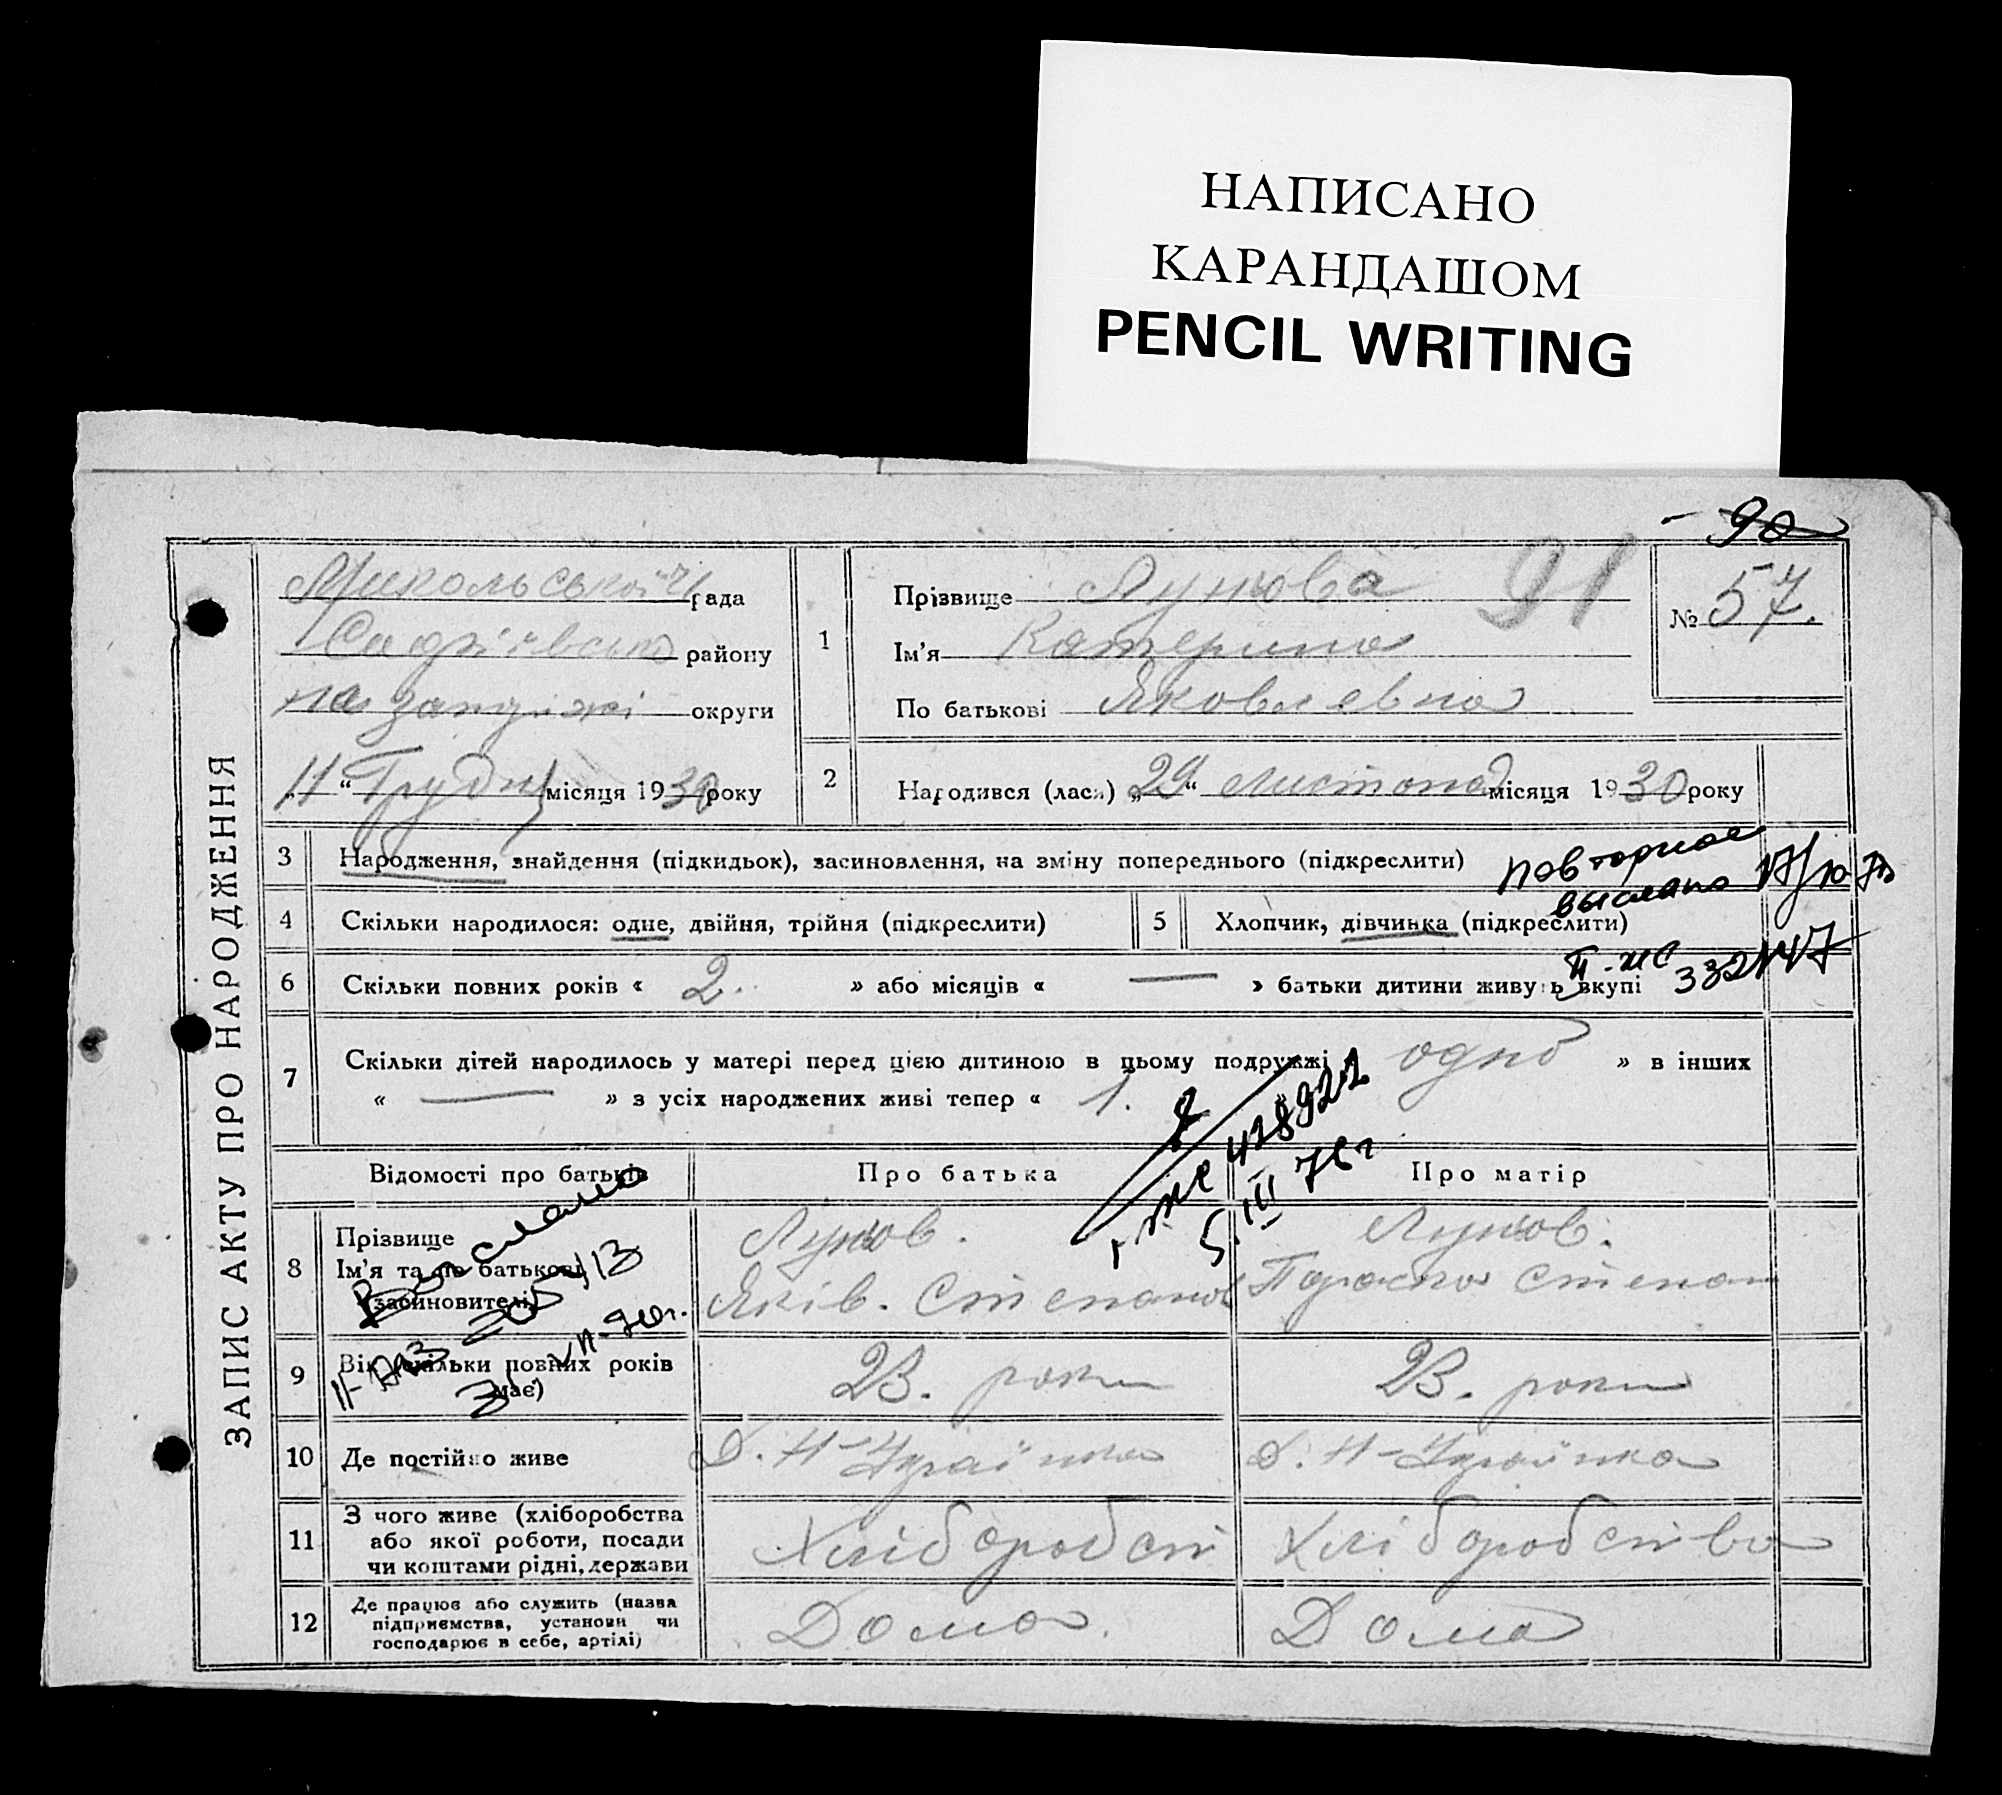 НАПИСАНО
КАРАНДАШОМ
PENCIL WRITING
90
91
ЗАПИС АКТУ ПРО НАРОДЖЕННЯ
Микольської рада
району
на округи
„11“ Грудня місяця 1930 року
№ 57.
1
Прізвище
Ім'я Катерина
По батькові Яковлевна
2 Народився (лась) „29“ Листопад місяця 1930 року
3 Народження, знайдення (підкидьок), засиновлення, на зміну попереднього (підкреслити)
повторное
выслано
4 Скільки народилося: одне, двійня, трійня (підкреслити)
5 Хлопчик, дівчинка (підкреслити)
6 Скільки повних років « 2. » або місяців « — » батьки дитини живуть вкупі
7 Скільки дітей народилось у матері перед цією дитиною в цьому подружжі « одно » в інших
« — » з усіх народжених живі тепер « 1.
418922
5.III 76г
Відомості про батьків Про батька Про матір
Выслано
8 Прізвище
Ім'я та по батькові
(засиновителі)
Яків. Степанов
Параска Степан
9 Вік (скільки повних років
має)
23. роки 23. роки
10 Де постійно живе
Х. Н-Українка Х. Н-Українка
11 З чого живе (хліборобства
або якої роботи, посади
чи коштами рідні, держави
Хлібороб­ст Хліборобства
12 Де працює або служить (назва
підприємства, установи чи
господарює в себе, артілі)
Дома. Дома